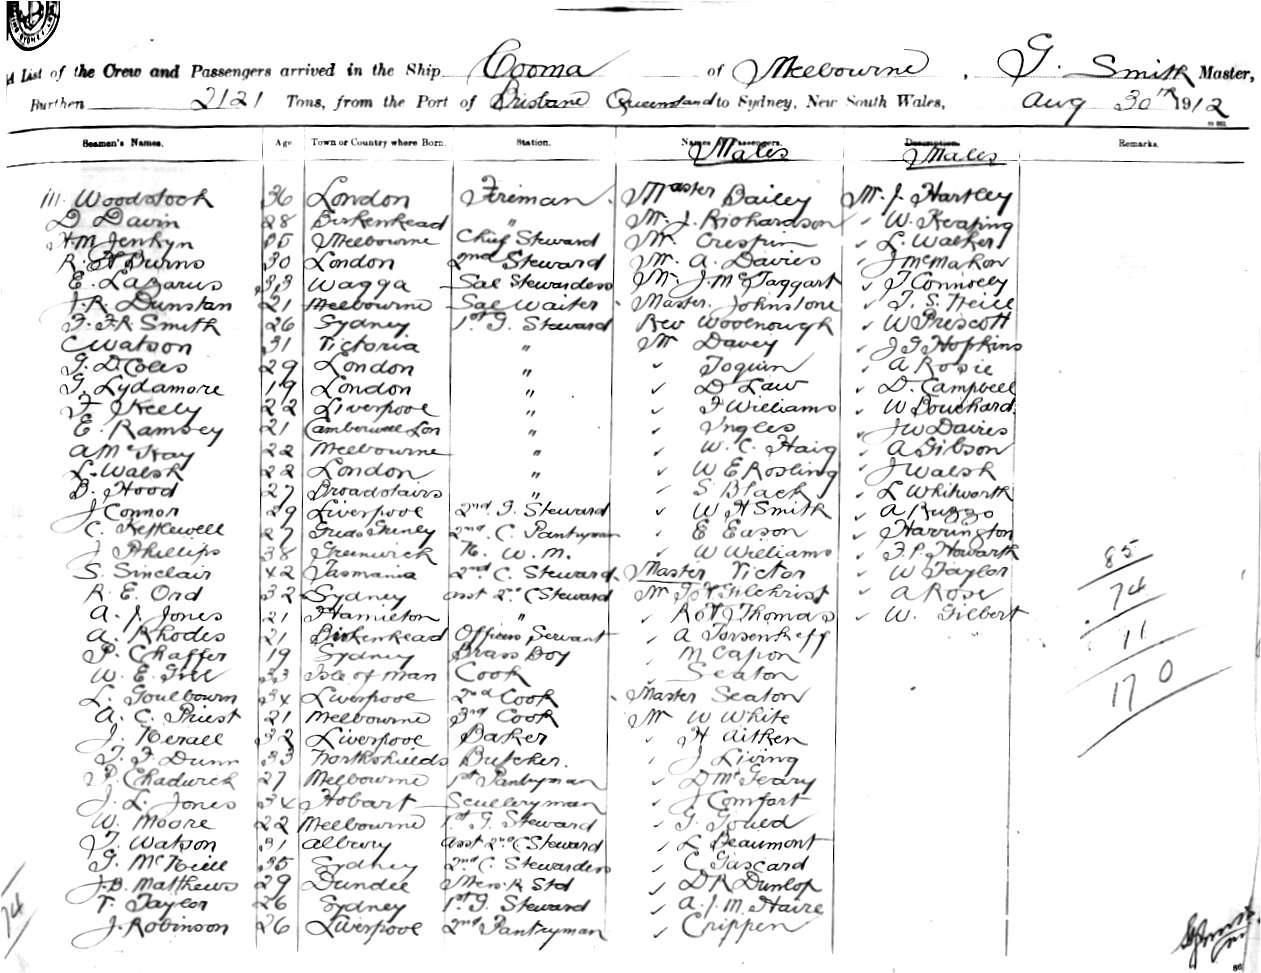 List of the Crew and Passengers arrived in the Ship Cooma of Melbourne, G. Smith Master,
Burthen 2121 Tons, from the Port of Brisbane Queensland to Sydney, New South Wales, Aug 30th 1912
Seamen's Names. Age Town or Country where Born. Station. Names of Passengers. Description. Remarks.
Males Males
Woodstock 36 London Fireman Master Bailey Mr. J. Hartley
D Davin 28 Birkenhead " Mr. J. Richardson ✓ W. Keating
H M Jenkyn 35 Melbourne Chief Steward Mr. Crespin ✓ L. Walker
R. H Burns 30 London 2nd Steward Mr. A. Davies ✓ J McMahon
E. Lazarus 33 Wagga Sal Stewardess Mr. J. McTaggart ✓ T Connolly
J. R. Dunstan 21 Melbourne Sal Waiter Master. Johnstone ✓ T. S. Neill
F. F R Smith 26 Sydney 1st G. Steward Rev Woolnough ✓ W Prescott
C Watson 31 Victoria " Mr Davey ✓ J G Hopkins
G. D. Coles 29 London " ✓ Toquin ✓ A Rosie
G. Lydamore 19 London " ✓ D Law ✓ D. Campbell
F J Keely 22 Liverpool " ✓ F Williams ✓ W Bouchard
E. Ramsey 21 Camberwell Lon " ✓ Ingles ✓ J W Davies
A McKay 22 Melbourne " ✓ W. C. Haig ✓ A Gibson
L. Walsh 22 London " ✓ W E Rosling ✓ J Walsh
B. Hood 27 Broadstairs " ✓ S Black ✓ L Whitworth
J Connor 29 Liverpool 2nd G. Steward ✓ W H Smith ✓ A Ruzzo
C. Kettlewell 27 2nd C. Pantryman ✓ E Eason ✓ Harrington
J Phillips 38 Greenwich N. W. M. ✓ W Williams ✓ F. P. Howarth 85
S. Sinclair 42 Tasmania 2nd C. Steward Master Victor ✓ W Taylor
R. E. Ord 32 Sydney asst 2nd C Steward Mr Gilchrist ✓ A Rose 74
A. J. Jones 21 Hamilton " ✓ Thomas ✓ W. Gilbert
A. Rhodes 21 Birkenhead Officers Servant ✓ A 11
P. Chaffer 19 Sydney Brass Boy ✓ M Capon
W. E. Gill 33 Isle of Man Cook ✓ Seaton 170
L. Goulbourn 34 Liverpool 2nd Cook Master Seaton
A. C. Priest 21 Melbourne 3rd Cook Mr W White
J. Nerall 32 Liverpool Baker ✓ H Aitken
T. F. Dunn 33 Northshields Butcher. ✓ J Living
P. Chadwick 27 Melbourne 1st Pantryman ✓ D McGeary
J. L. Jones 34 Hobart Sculleryman ✓ J Comfort
W. Moore 22 Melbourne 1st G. Steward ✓ G Gould
T Watson 31 Albury asst 2nd C Steward ✓ L Beaumont
G. McNeill 35 Sydney 2nd C. Stewardess ✓ C Gascard
J. B. Matthews 29 Dundee Mess. R Std ✓ D R Dunlop
T. Taylor 26 Sydney 1st G. Steward ✓ A. J. M. Haire
J. Robinson 26 Liverpool 2nd Pantryman ✓ Crippen
74